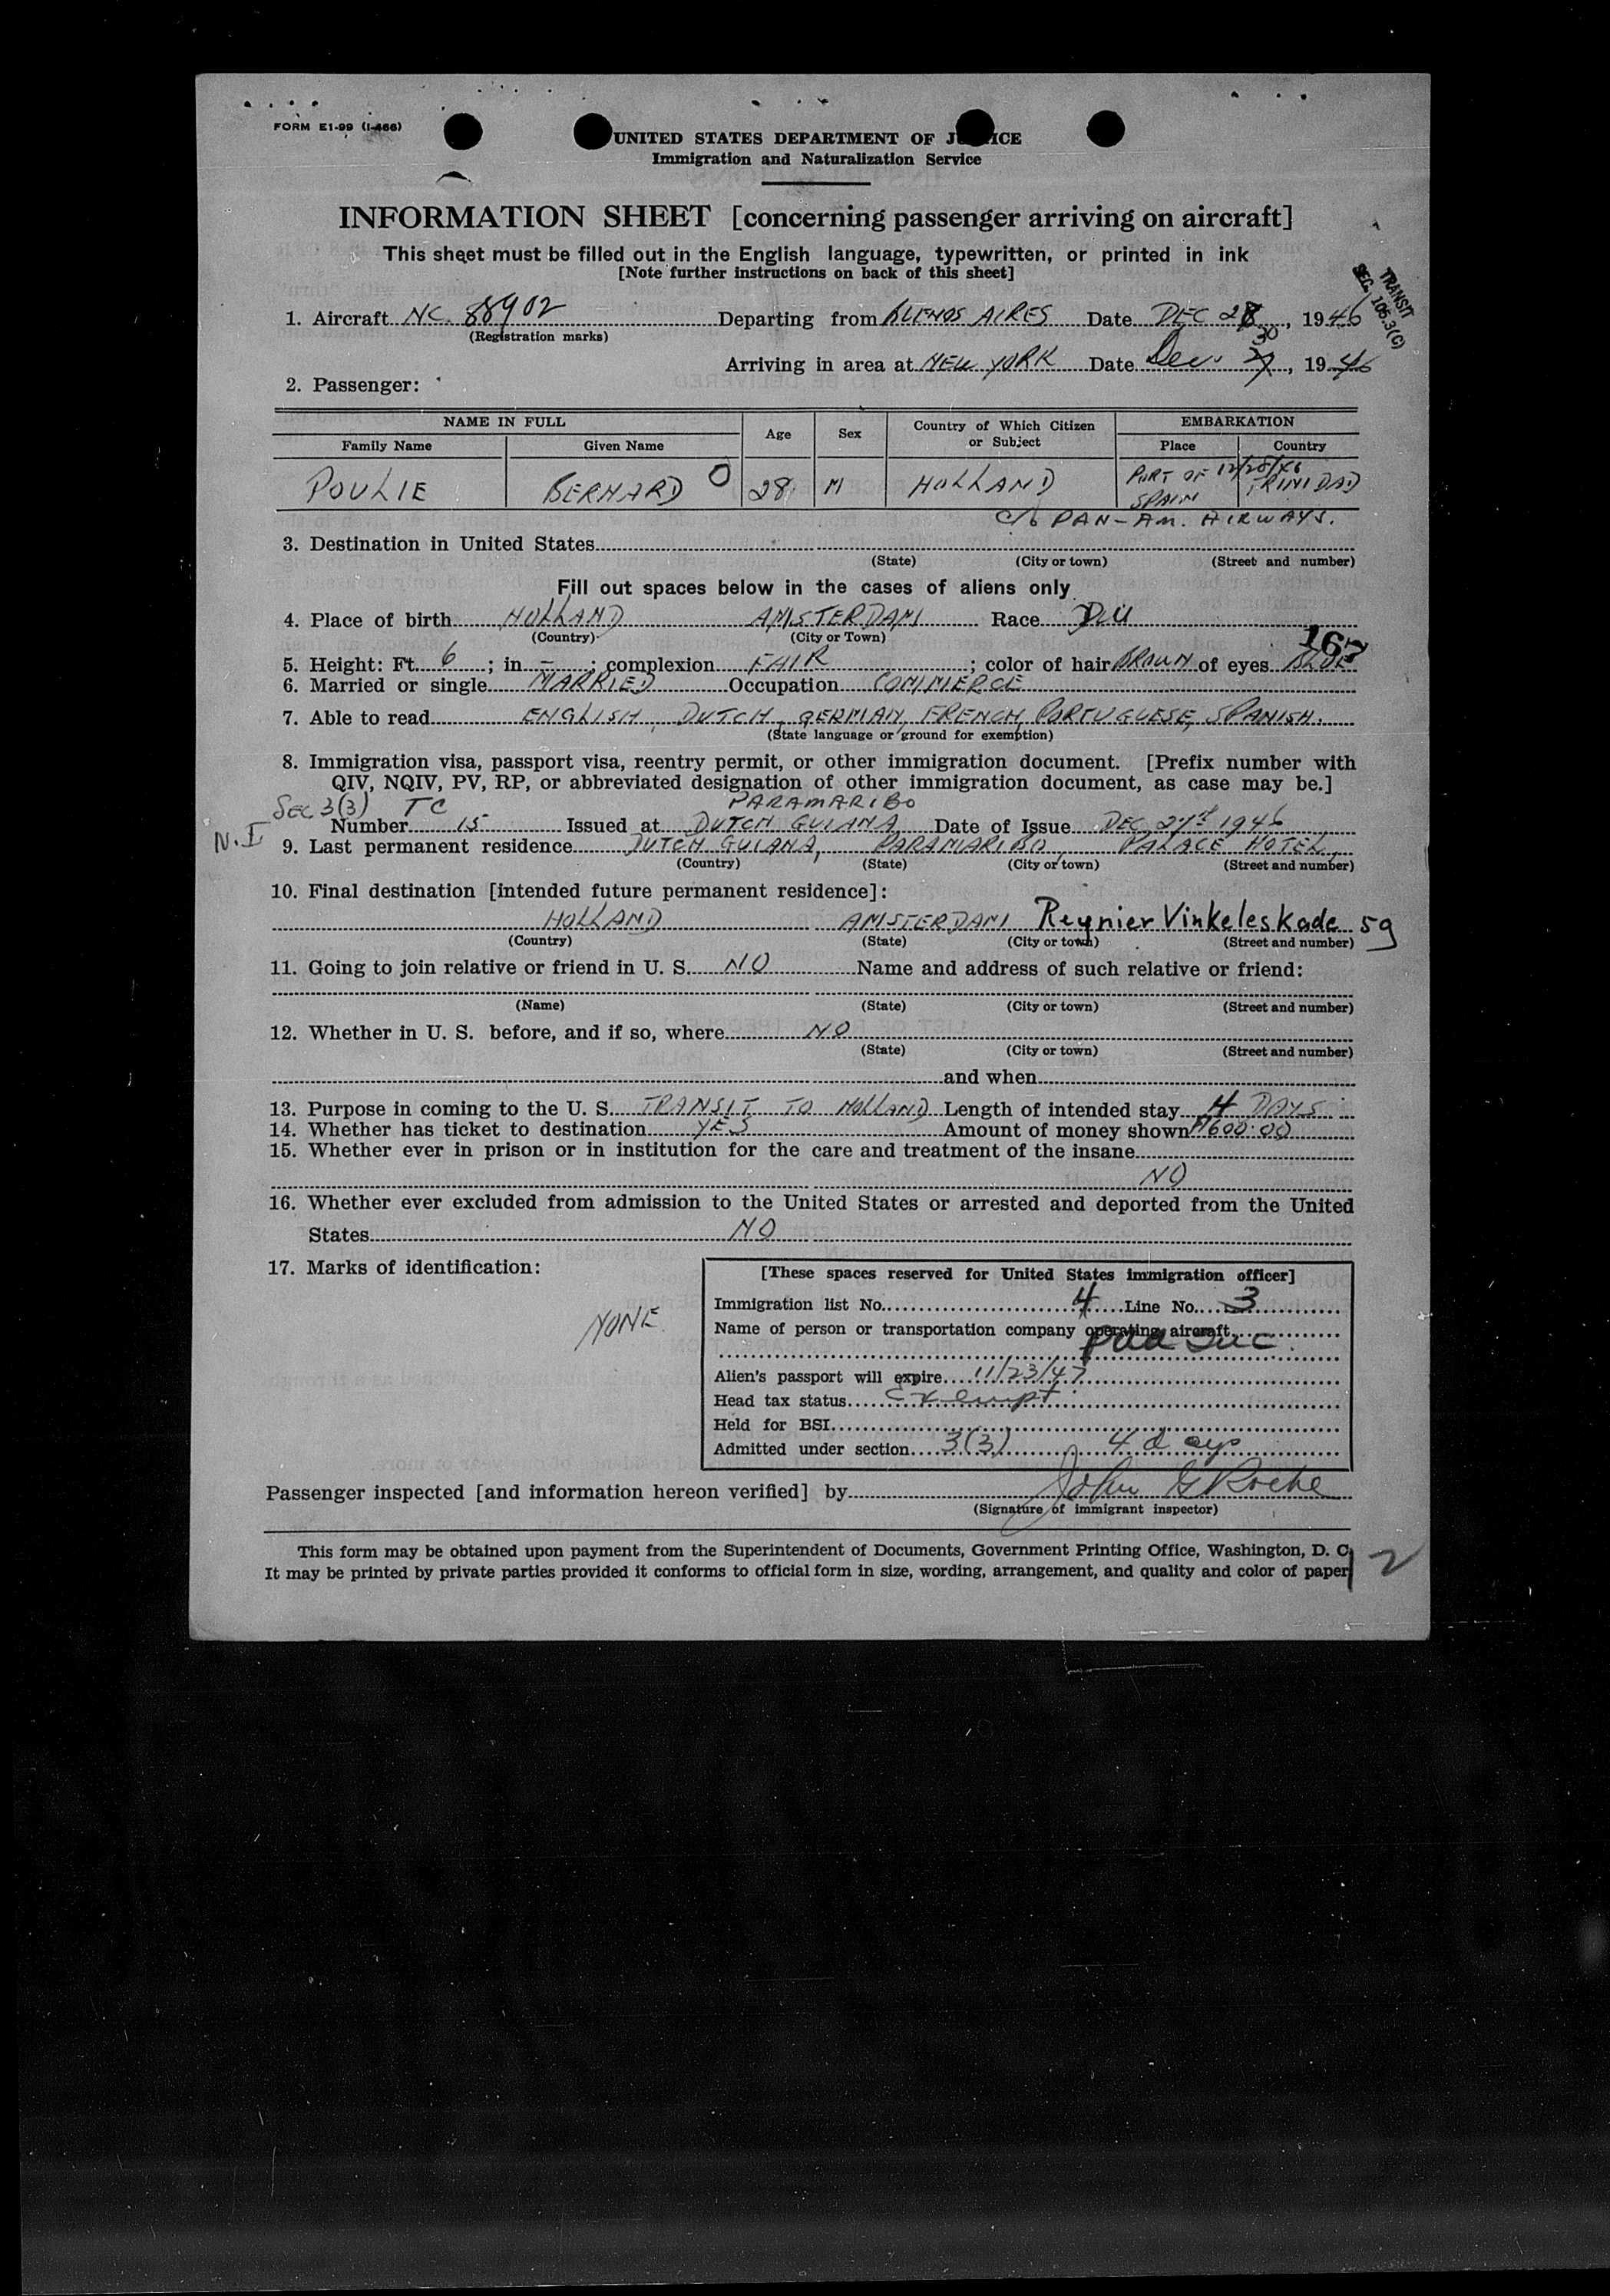 FORM E1-99 (I-466)
UNITED STATES DEPARTMENT OF J ICE
Immigration and Naturalization Service
INFORMATION SHEET [concerning passenger arriving on aircraft]
This sheet must be filled out in the English language, typewritten, or printed in ink
[Note further instructions on back of this sheet]
TRANSIT
SEC. 106.3(C)
1. Aircraft NC. 88902 Departing from BUENOS AIRES Date DEC 28, 1946
(Registration marks)
30
Arriving in area at NEW YORK Date Dec. 27, 1946
2. Passenger:
NAME IN FULL Age Sex Country of Which Citizen or Subject EMBARKATION
Family Name Given Name Place Country
12/28/46
POULIE BERNARD O 28 M HOLLAND PORT OF SPAIN TRINIDAD
c/o PAN-AM. AIRWAYS.
3. Destination in United States
(State) (City or town) (Street and number)
Fill out spaces below in the cases of aliens only
4. Place of birth HOLLAND AMSTERDAM Race DU
(Country) (City or Town)
167
5. Height: Ft. 6; in –; complexion FAIR; color of hair BROWN of eyes BLUE
6. Married or single MARRIED Occupation COMMERCE
7. Able to read ENGLISH, DUTCH, GERMAN, FRENCH, PORTUGUESE, SPANISH.
(State language or ground for exemption)
8. Immigration visa, passport visa, reentry permit, or other immigration document. [Prefix number with
QIV, NQIV, PV, RP, or abbreviated designation of other immigration document, as case may be.]
SEC 3(3) TC PARAMARIBO
Number 15 Issued at DUTCH GUIANA Date of Issue DEC 27th 1946
N.I
9. Last permanent residence DUTCH GUIANA, PARAMARIBO, PALACE HOTEL,
(Country) (State) (City or town) (Street and number)
10. Final destination [intended future permanent residence]:
HOLLAND AMSTERDAM Reynier Vinkeleskade 59
(Country) (State) (City or town) (Street and number)
11. Going to join relative or friend in U. S. NO Name and address of such relative or friend:
(Name) (State) (City or town) (Street and number)
12. Whether in U. S. before, and if so, where NO
(State) (City or town) (Street and number)
and when
13. Purpose in coming to the U. S. TRANSIT TO HOLLAND Length of intended stay 4 DAYS
14. Whether has ticket to destination YES Amount of money shown 600.00
15. Whether ever in prison or in institution for the care and treatment of the insane
NO
16. Whether ever excluded from admission to the United States or arrested and deported from the United
States NO
17. Marks of identification:
NONE
[These spaces reserved for United States immigration officer]
Immigration list No. 4 Line No. 3
Name of person or transportation company operating aircraft
paa inc.
Alien's passport will expire 11/23/47
Head tax status Exempt
Held for BSI
Admitted under section 3(3) 4 days
Passenger inspected [and information hereon verified] by John G Roche
(Signature of immigrant inspector)
This form may be obtained upon payment from the Superintendent of Documents, Government Printing Office, Washington, D. C.
It may be printed by private parties provided it conforms to official form in size, wording, arrangement, and quality and color of paper
2